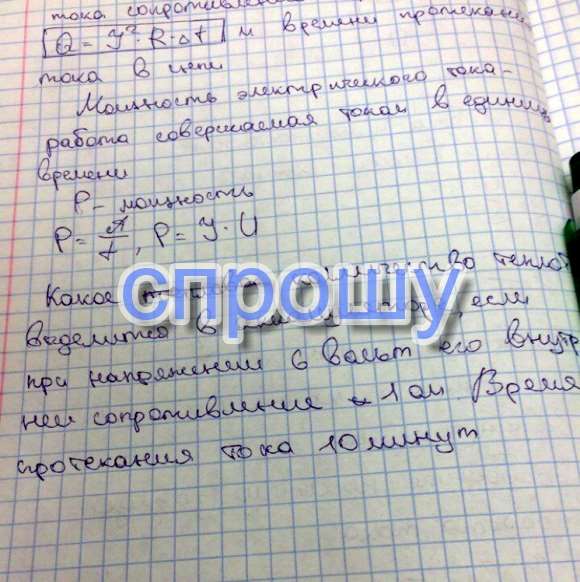 тока сопротивления
Q = У² · R · Δt и времени протекания
тока в цепи
Мощность электрического тока -
работа совершаемая током в единицу
времени
P - мощность
P = A/t, P = У · U
Какое количество теплот
спрошу
выделится в если
при напряжении 6 вольт его внутр
нее сопротивление - 1 ом Время
протекания тока 10 минут